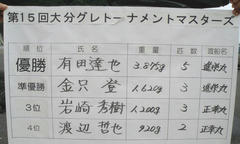 第15回大分グレトーナメントマスターズ
順位 氏名 重量 匹数 渡船名
優勝 有田達也 3.875g 5
準優勝 金只登 1.620g 3
3位 岩崎秀樹 1.200g 3 正幸丸
4位 渡辺哲也 920g 2 正幸丸